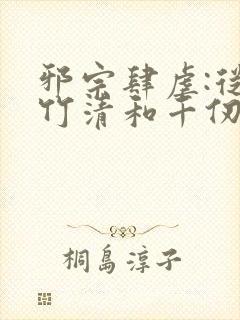 邪宗肆虐:從
竹清和千仞
桐島淳子